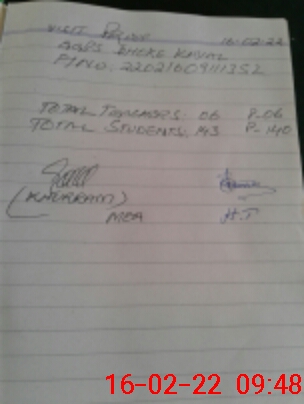 VISIT 16.02.22
GGPS DHEKE KAVAL
P/NO. 22021609111352
TOTAL TEACHERS: 06 P-06
TOTAL STUDENTS. 143 P-140
(KHURRAM)
MEA H.T
16-02-22 09:48